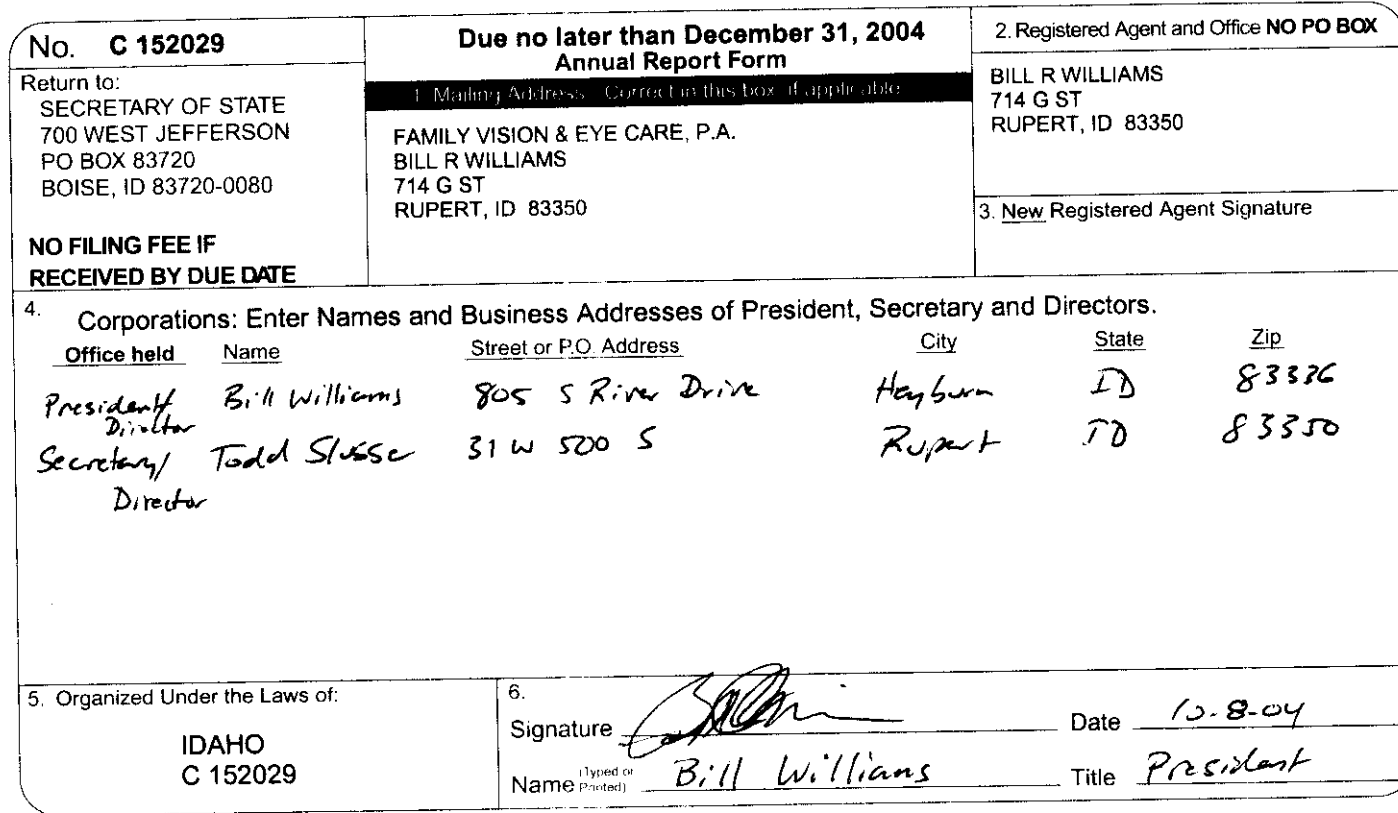 No. C 152029
Return to:
SECRETARY OF STATE
700 WEST JEFFERSON
PO BOX 83720
BOISE, ID 83720-0080
NO FILING FEE IF
RECEIVED BY DUE DATE
Due no later than December 31, 2004
Annual Report Form
1. Mailing Address: Correct in this box, if applicable
FAMILY VISION & EYE CARE, P.A.
BILL R WILLIAMS
714 G ST
RUPERT, ID 83350
2. Registered Agent and Office NO PO BOX
BILL R WILLIAMS
714 G ST
RUPERT, ID 83350
3. New Registered Agent Signature
4. Corporations: Enter Names and Business Addresses of President, Secretary and Directors.
Office held Name Street or P.O. Address City State Zip
President/ Bill Williams 805 S River Drive Heyburn ID 83336
Director
Secretary/ Todd 31 W 500 S Rupert ID 83350
Director
5. Organized Under the Laws of:
IDAHO
C 152029
6.
Signature Date 10-8-04
Name (Typed or Printed) Bill Williams Title President